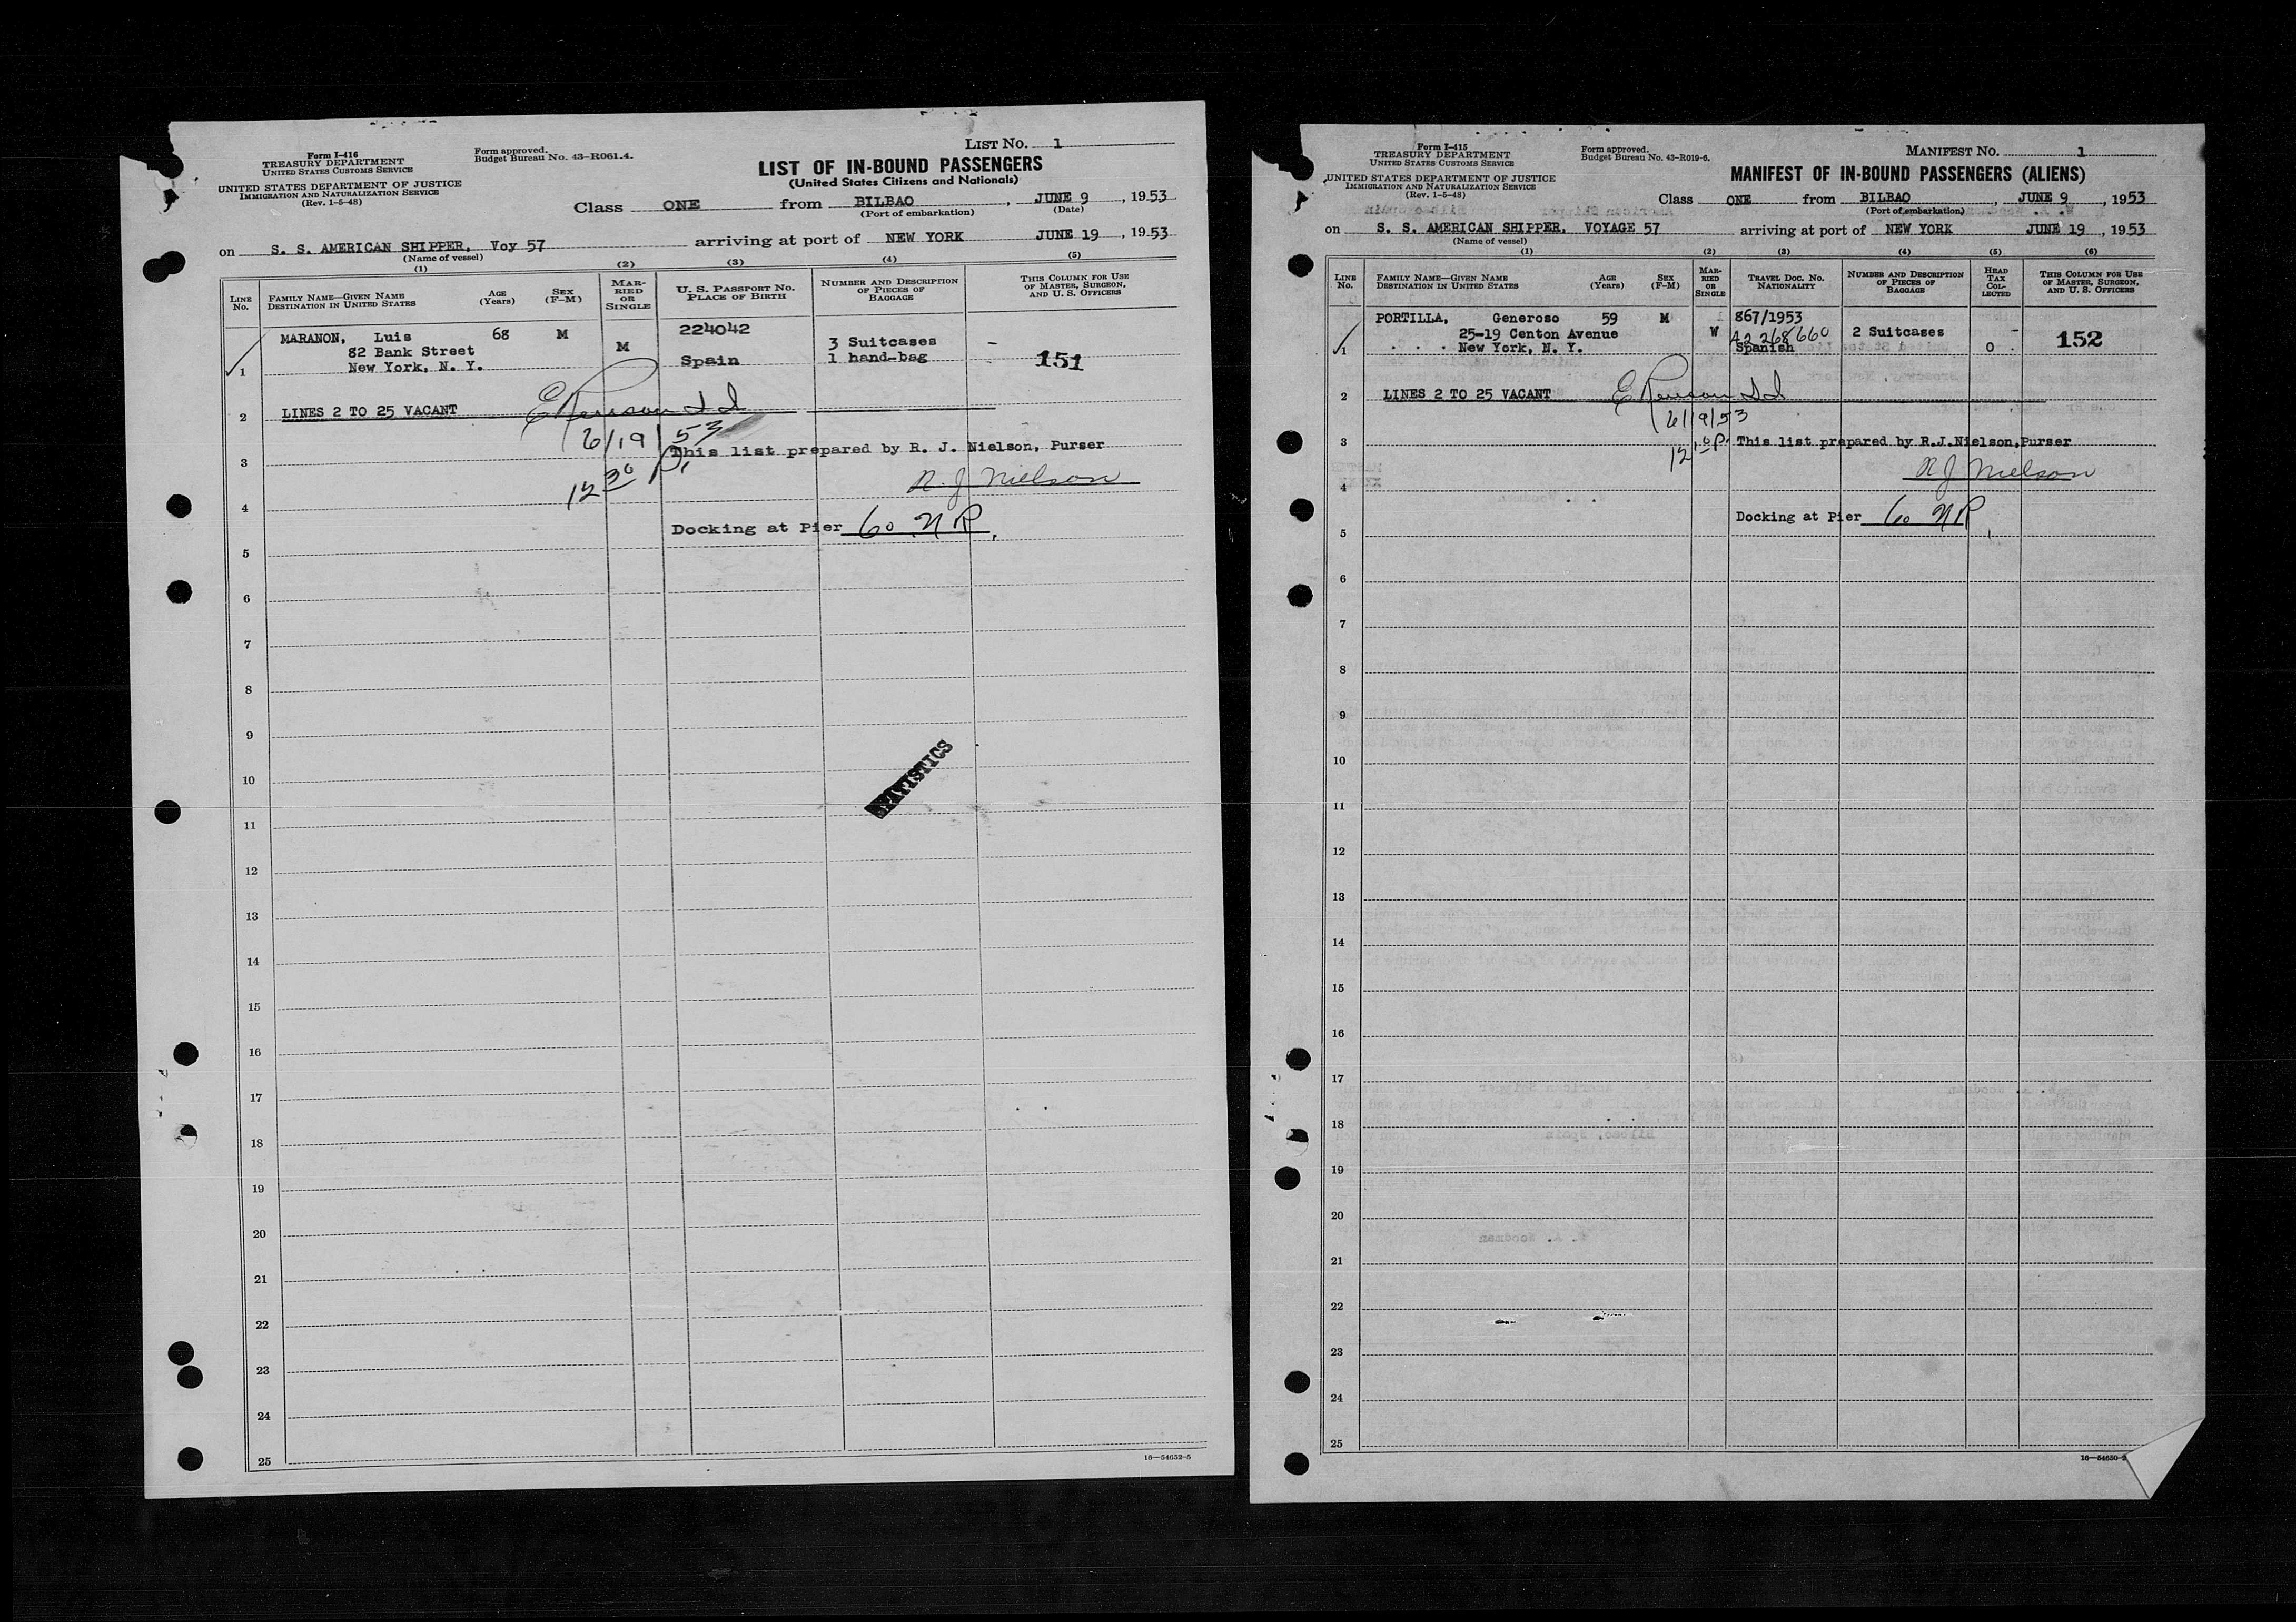 Form I-416
TREASURY DEPARTMENT
UNITED STATES CUSTOMS SERVICE
UNITED STATES DEPARTMENT OF JUSTICE
IMMIGRATION AND NATURALIZATION SERVICE
(Rev. 1-5-48)
Form approved.
Budget Bureau No. 43-R061.4.
LIST No. 1
LIST OF IN-BOUND PASSENGERS
(United States Citizens and Nationals)
Class ONE from BILBAO, JUNE 9, 1953
(Port of embarkation) (Date)
on S. S. AMERICAN SHIPPER, Voy 57 arriving at port of NEW YORK JUNE 19, 1953
(Name of vessel)
(1) (2) (3) (4) (5)
LINE No. FAMILY NAME—GIVEN NAME DESTINATION IN UNITED STATES AGE (Years) SEX (F-M) MARRIED OR SINGLE U. S. PASSPORT No. PLACE OF BIRTH NUMBER AND DESCRIPTION OF PIECES OF BAGGAGE THIS COLUMN FOR USE OF MASTER, SURGEON, AND U. S. OFFICERS
MARANON, Luis 68 M M 224042 3 Suitcases -
82 Bank Street
New York, N. Y. Spain 1 hand-bag - 151
1
2 LINES 2 TO 25 VACANT
6/19/53
3 This list prepared by R. J. Nielson, Purser
12 30 P.
R. J. Nielson
4
Docking at Pier 60 N R.
5
6
7
8
9
STATISTICS
10
11
12
13
14
15
16
17
18
19
20
21
22
23
24
25
16-54652-5
Form I-415
TREASURY DEPARTMENT
UNITED STATES CUSTOMS SERVICE
UNITED STATES DEPARTMENT OF JUSTICE
IMMIGRATION AND NATURALIZATION SERVICE
(Rev. 1-5-48)
Form approved.
Budget Bureau No. 43-R019-6.
MANIFEST No. 1
MANIFEST OF IN-BOUND PASSENGERS (ALIENS)
Class ONE from BILBAO, JUNE 9, 1953
(Port of embarkation)
on S. S. AMERICAN SHIPPER, VOYAGE 57 arriving at port of NEW YORK JUNE 19, 1953
(Name of vessel)
(1) (2) (3) (4) (5) (6)
LINE No. FAMILY NAME—GIVEN NAME DESTINATION IN UNITED STATES AGE (Years) SEX (F-M) MARRIED OR SINGLE TRAVEL DOC. No. NATIONALITY NUMBER AND DESCRIPTION OF PIECES OF BAGGAGE HEAD TAX COLLECTED THIS COLUMN FOR USE OF MASTER, SURGEON, AND U. S. OFFICERS
PORTILLA, Generoso 59 M 867/1953
25-19 Centon Avenue W A2 268660 2 Suitcases - 152
1 New York, N. Y. Spanish 0
2 LINES 2 TO 25 VACANT
6/19/53
3 This list prepared by R.J.Nielson,Purser
R J Nielson
4
Docking at Pier 60 N R
5
6
7
8
9
10
11
12
13
14
15
16
17
18
19
20
21
22
23
24
25